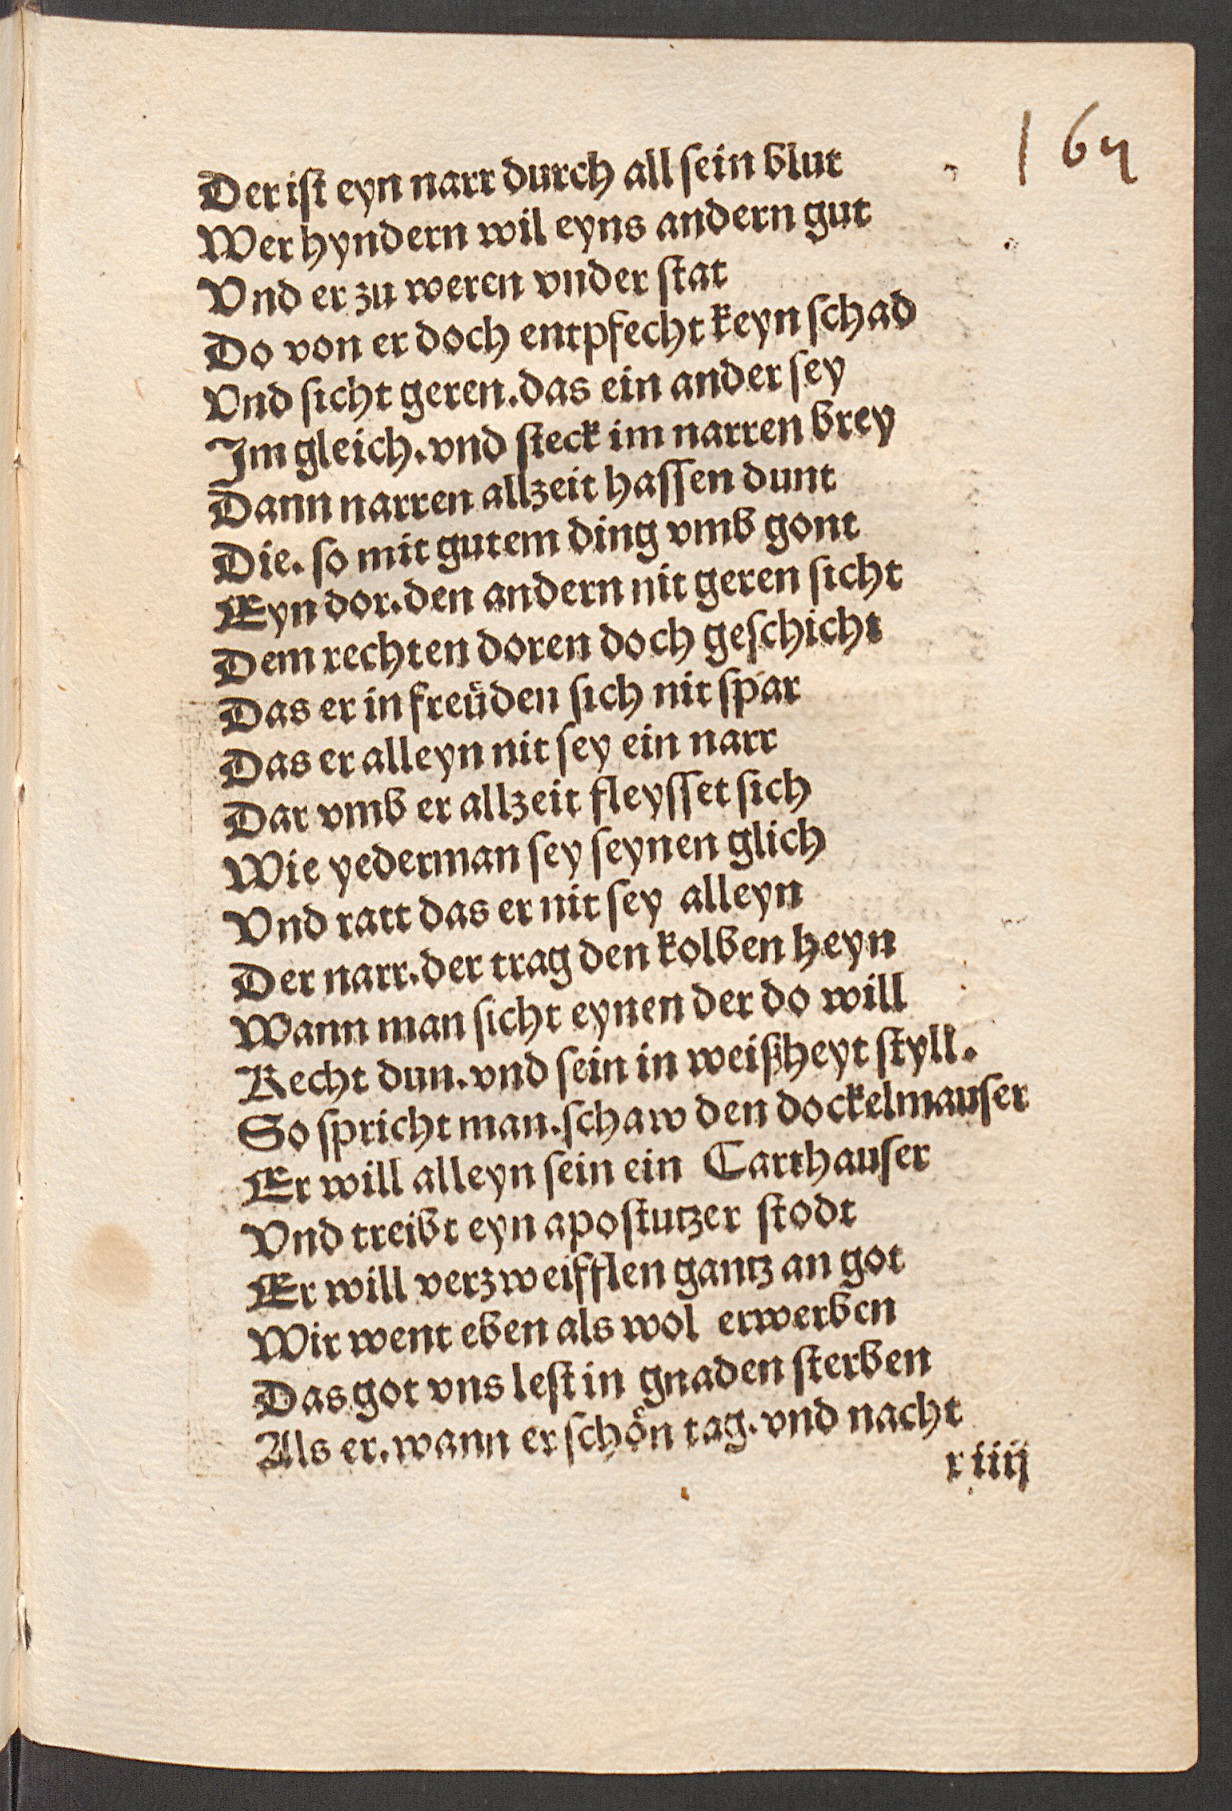 164
Der ist eyn narr durch all sein blut
Wer hyndern wil eyns andern gut
Vnd er zu weren vnder stat
Do von er doch entpfecht keyn schad
Vnd sicht geren. das ein ander sey
Im gleich. vnd steck im narren brey
Dann narren allzeit hassen dunt
Die. so mit gutem ding vmb gont
Eyn dor. den andern nit geren sicht
Dem rechten doren doch geschicht
Das er in freüden sich nit spar
Das er alleyn nit sey ein narr
Dar vmb er allzeit fleysset sich
Wie yederman sey seynen glich
Vnd ratt das er nit sey alleyn
Der narr. der trag den kolben heyn
Wann man sicht eynen der do will
Recht dun. vnd sein in weißheyt styll.
So spricht man. schaw den dockelmauser
Er will alleyn sein ein Carthauser
Vnd treibt eyn apostutzer stodt
Er will verzweifflen gantz an got
Wir went eben als wol erwerben
Das got vns lest in gnaden sterben
Als er. wann er schön tag. vnd nacht
x iiij